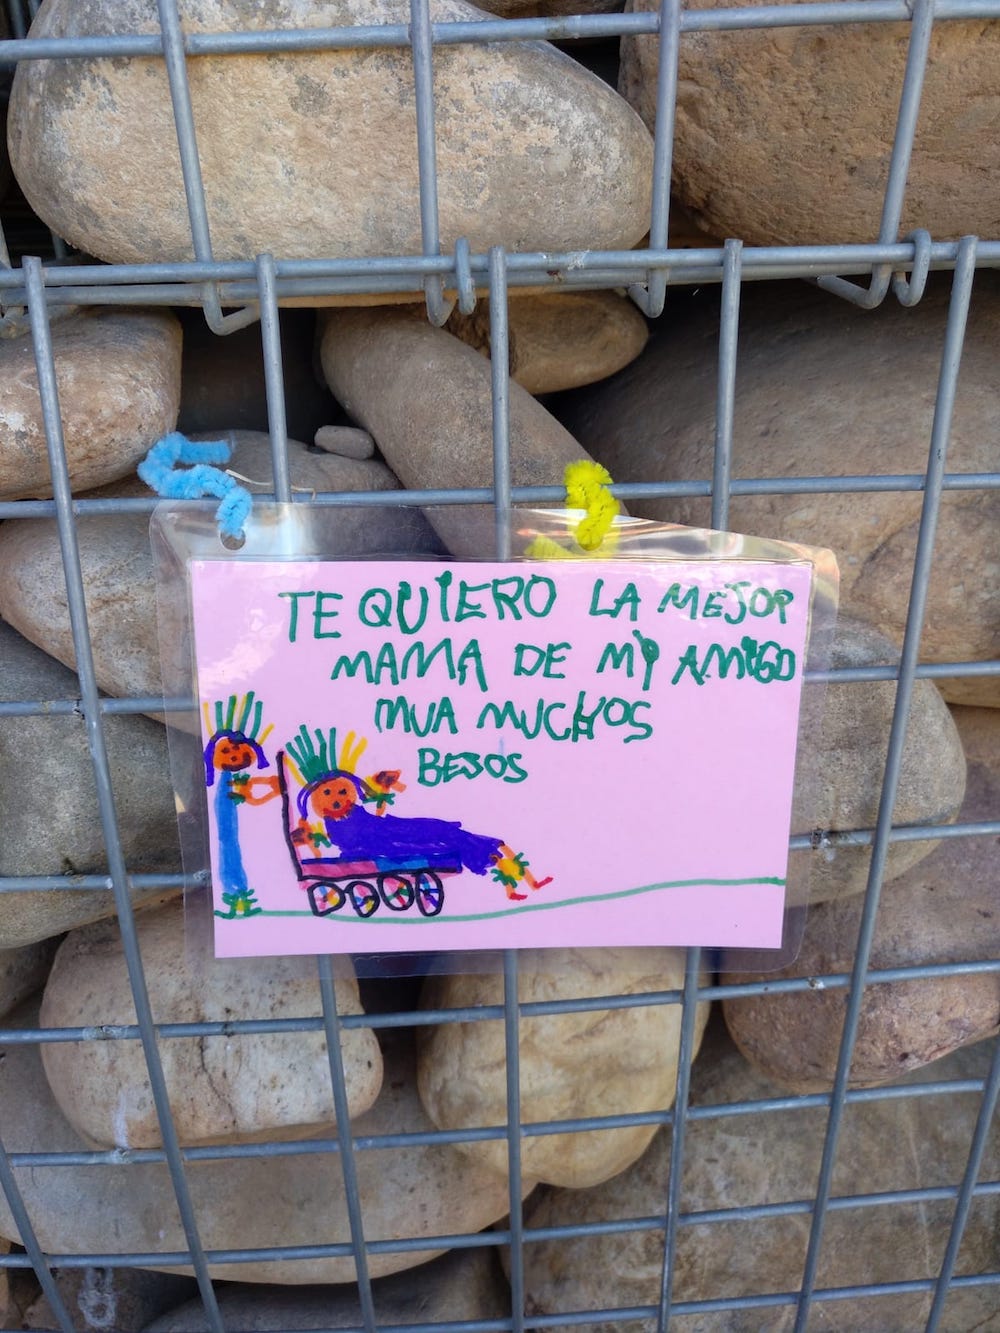 TE QUIERO LA MEJOR
MAMA DE MI AMIGO
MUA MUCHOS
BESOS